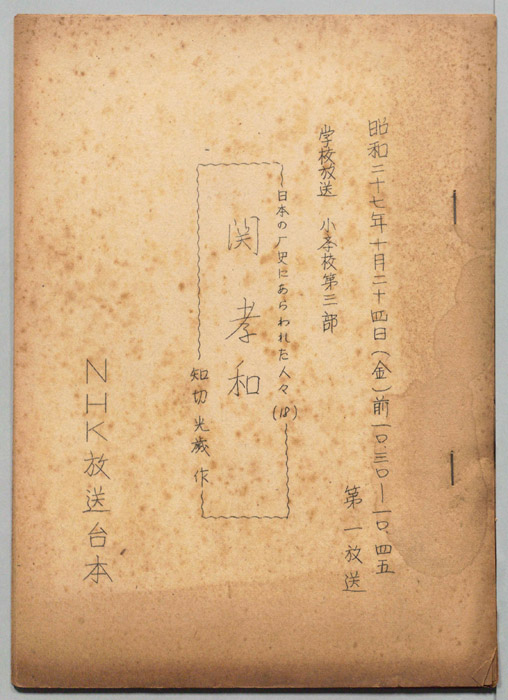 昭和二十七年十月二十四日(金)前一〇.三〇―一〇.四五
第一放送
学校放送 小学校第三部
日本の厂史にあらわれた人々(18)
関孝和
知切光歳 作
NHK放送台本